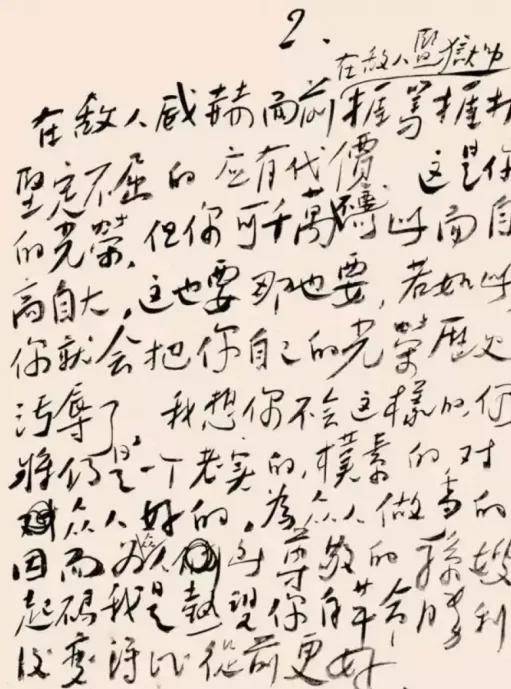 2.
在敌人监獄中
在敌人威赫面前捱罵捱打
坚定不屈的应有代價 这是你
的光榮,但你可千萬不要為此而自
高自大,这也要那也要,若如此
你就会把你自己的光榮歷史
污辱了。我想你不会这樣的,你
將仍是一个老实的,樸素的对
众人好的,為众人做事的
因而为众人所尊敬的孫嫂
起码我是望你在革命胜利
后变得比從前更好